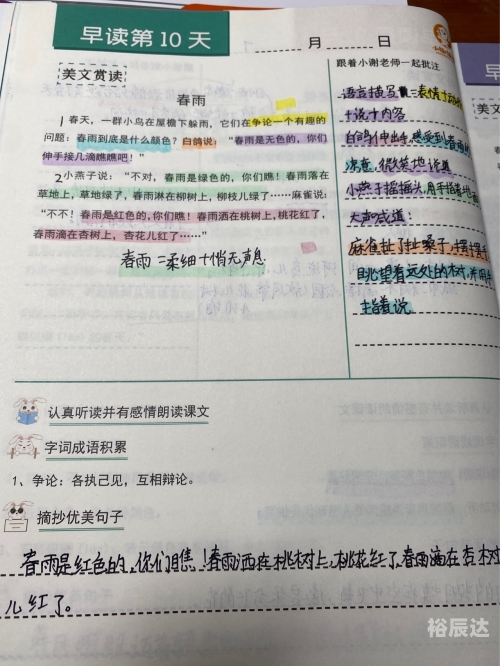 早读第10天
月 日
美文赏读
春雨
1春天，一群小鸟在屋檐下躲雨，它们在争论一个有趣的
问题：春雨到底是什么颜色？白鸽说：“春雨是无色的，你们
伸手接几滴瞧瞧吧！”
2小燕子说：“不对，春雨是绿色的，你们瞧！春雨落在
草地上，草地绿了，春雨淋在柳树上，柳枝儿绿了……麻雀说：
“不不！春雨是红色的，你们瞧！春雨洒在桃树上，桃花红了，
春雨滴在杏树上，杏花儿红了……”
春雨=柔细+悄无声息
跟着小谢老师一起批注
语言描写=表情+动作
+说+内容
白鸽伸出手，感受到春雨的
凉意，微笑地说道
小燕子摇摇头，用手指着
大声喊道：
麻雀扯了扯嗓子，
眺望着远处的树，并用手
指着说
认真听读并有感情朗读课文
字词成语积累
1、争论：各执己见，互相辩论。
摘抄优美句子
春雨是红色的，你们瞧！春雨洒在桃树上，桃花红了，春雨滴在杏树上，杏花
儿红了。
裕辰达